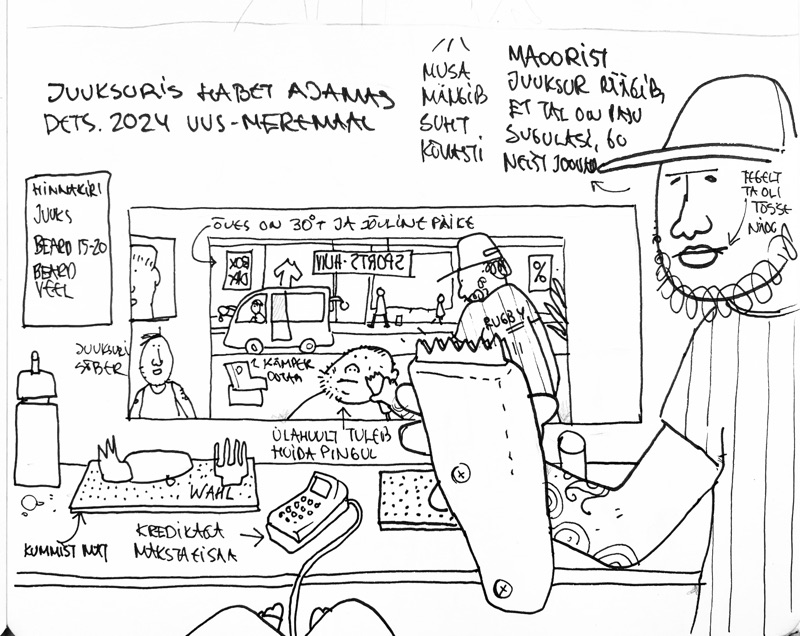 JUUKSURIS HABET AJAMAS
DETS. 2024 UUS-MEREMAAL
MUSA
MÄNGIB
SUHT
KÕVASTI
MAOORIST
JUUKSUR RÄÄGIB,
ET TAL ON PALJU
SUGULASI, 60
NEIST JOOVAD
TEGELT
TA OLI
TÖSSE
NÄOG
HINNAKIRI
JUUKS
BEARD 15-20
BEARD
VEEL
ÕUES ON 30°+ JA JÕULINE PÄIKE
BOX
SPORTS-HUNI
%
RUGBY
JUUKSURI
SÕBER
2 KÄMPER
OOTAB
ÜLAHUULT TULEB
HOIDA PINGUL
WAHL
KUMMIST MATT
KREDIKAGA
MAKSTA EI SAA